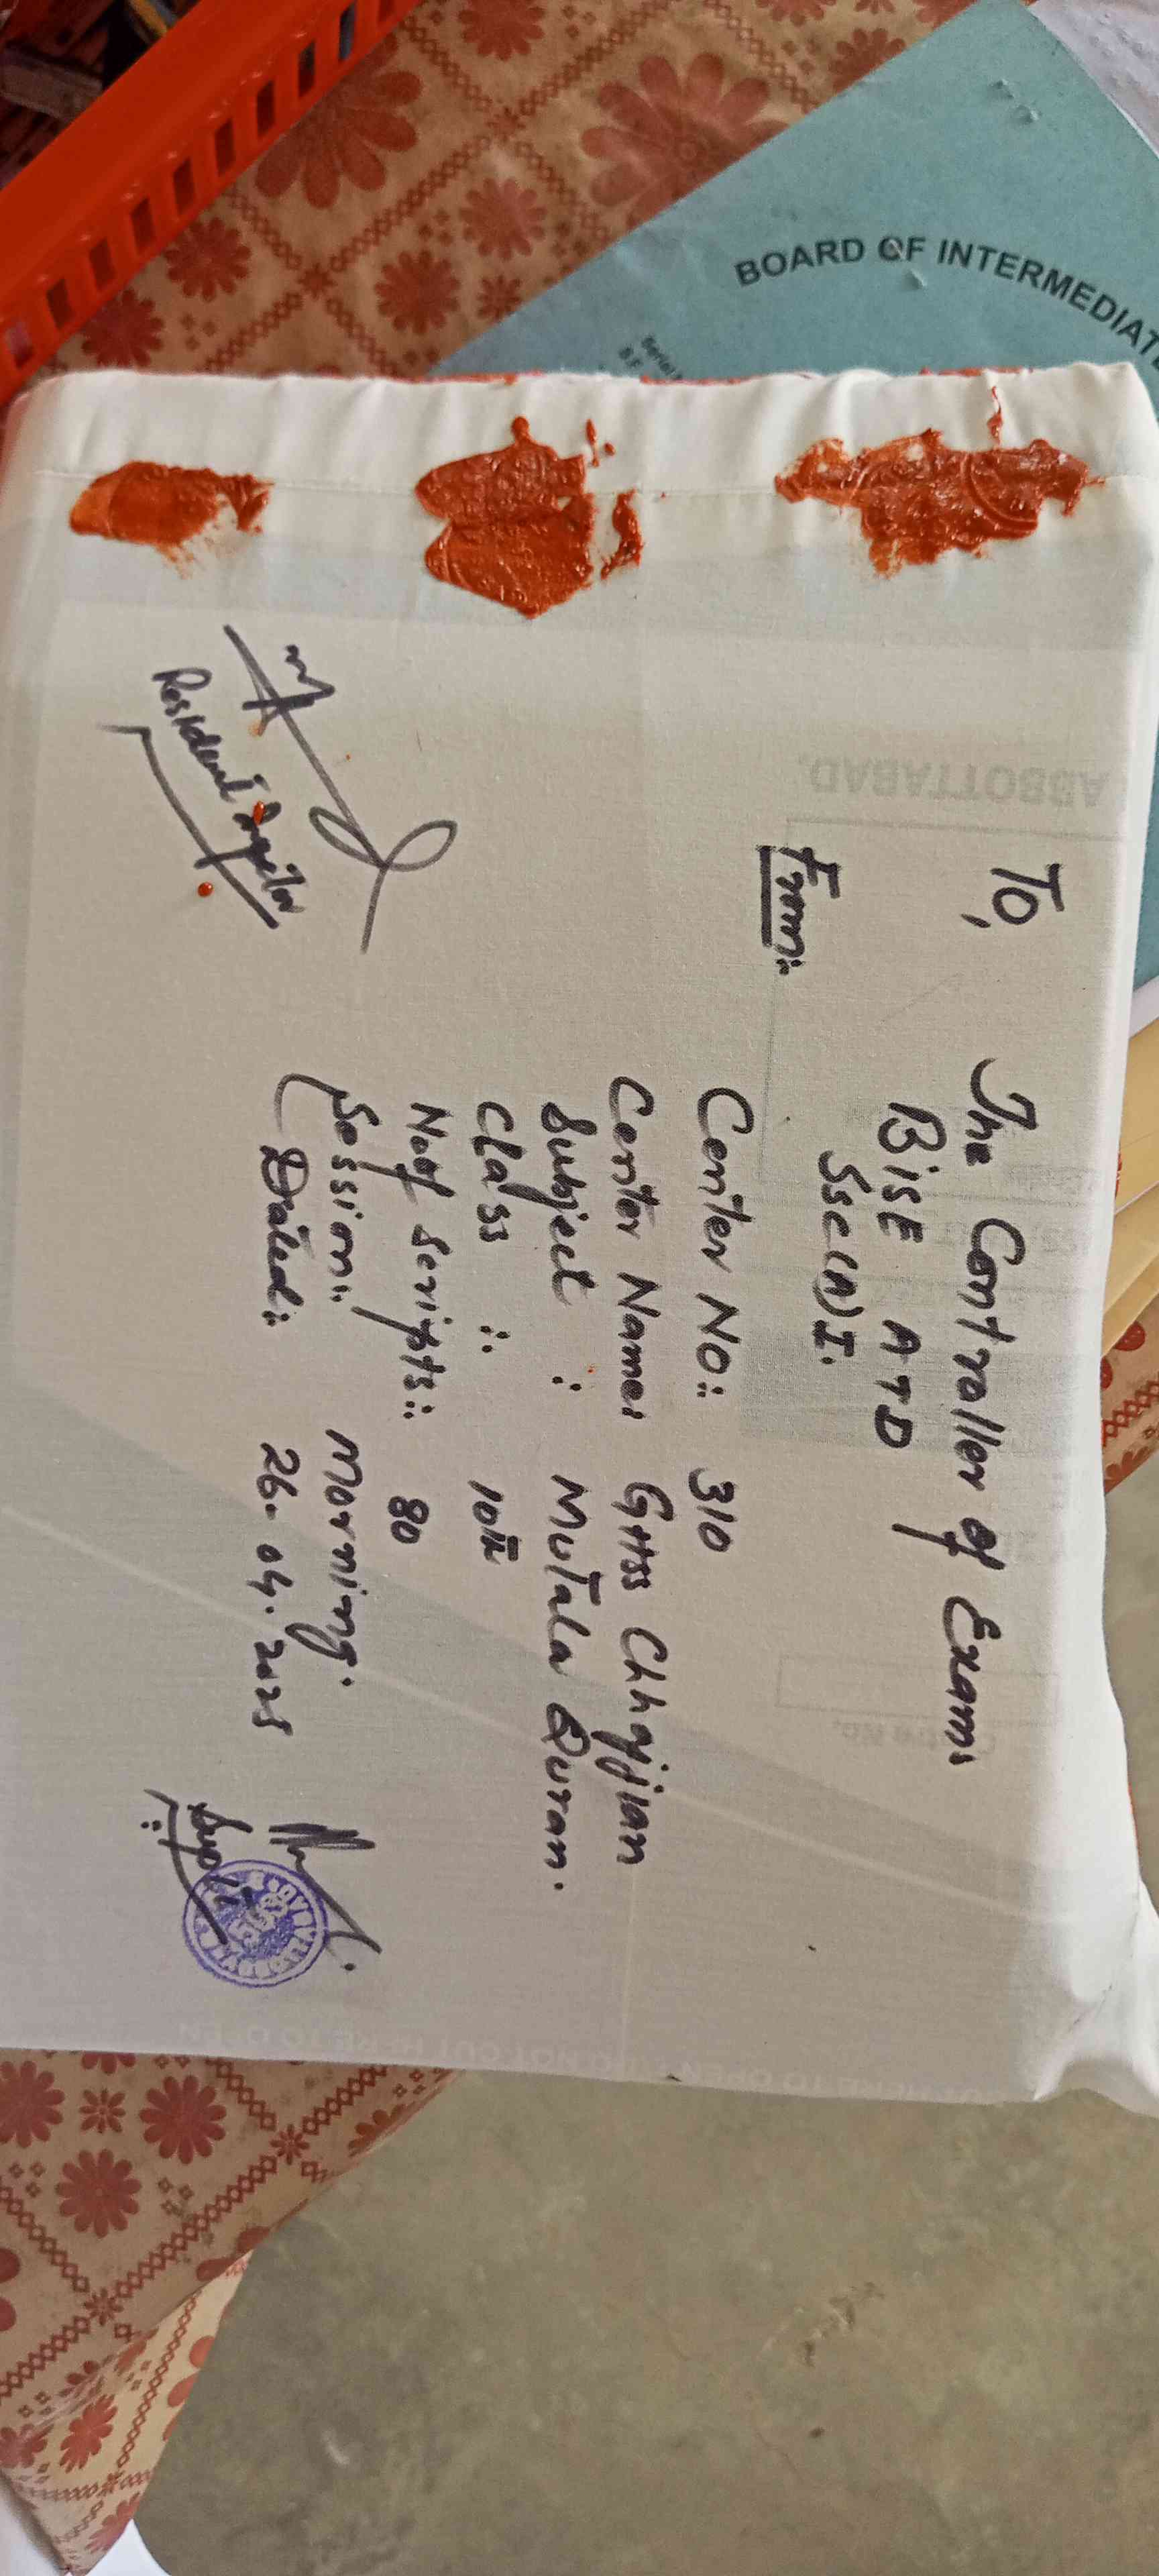 BOARD OF INTERMEDIATE
ABBOTTABAD.
To,
The Controller of Exams
BISE ATD
SSC(A)I.
From:
Center No:: 310
Center Name: GHSS Chhajjian
Subject : Mutala Quran.
Class :. 10th
No of Scripts:: 80
Session:: Morning.
Dated:: 26.04.2025
Resident Inspector
Supdt
DO NOT CUT HERE TO OPEN